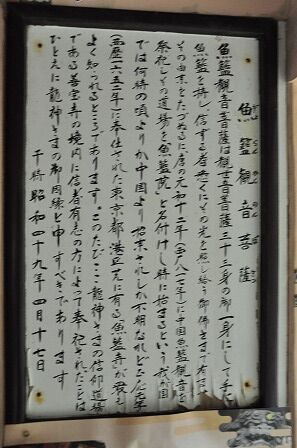 魚籃観音菩薩
魚籃観音菩薩は観世音菩薩三十三身の御一身にして手に
魚籃を持し、信ずる者無くにその光を照し給う御佛であります
その由来をたづぬるに唐の元和十二年(西八一七年)に中国魚籃観音を
祭祀しその道場を魚籃院と名付けし時に始まるという 我が国
では何時の頃よりか中国より招来されしか不明なれど承応元年
(西歴一六五二年)に奉仕された東京都港区芝に有る魚籃寺が衆人
よく知られるところであります。このたびここ龍神さまの信仰道場
である善宝寺の境内に信者有志の方によって奉祀されたことは
ひとえに龍神さまの御因縁と申すべきであります
于時昭和四十九年四月十七日